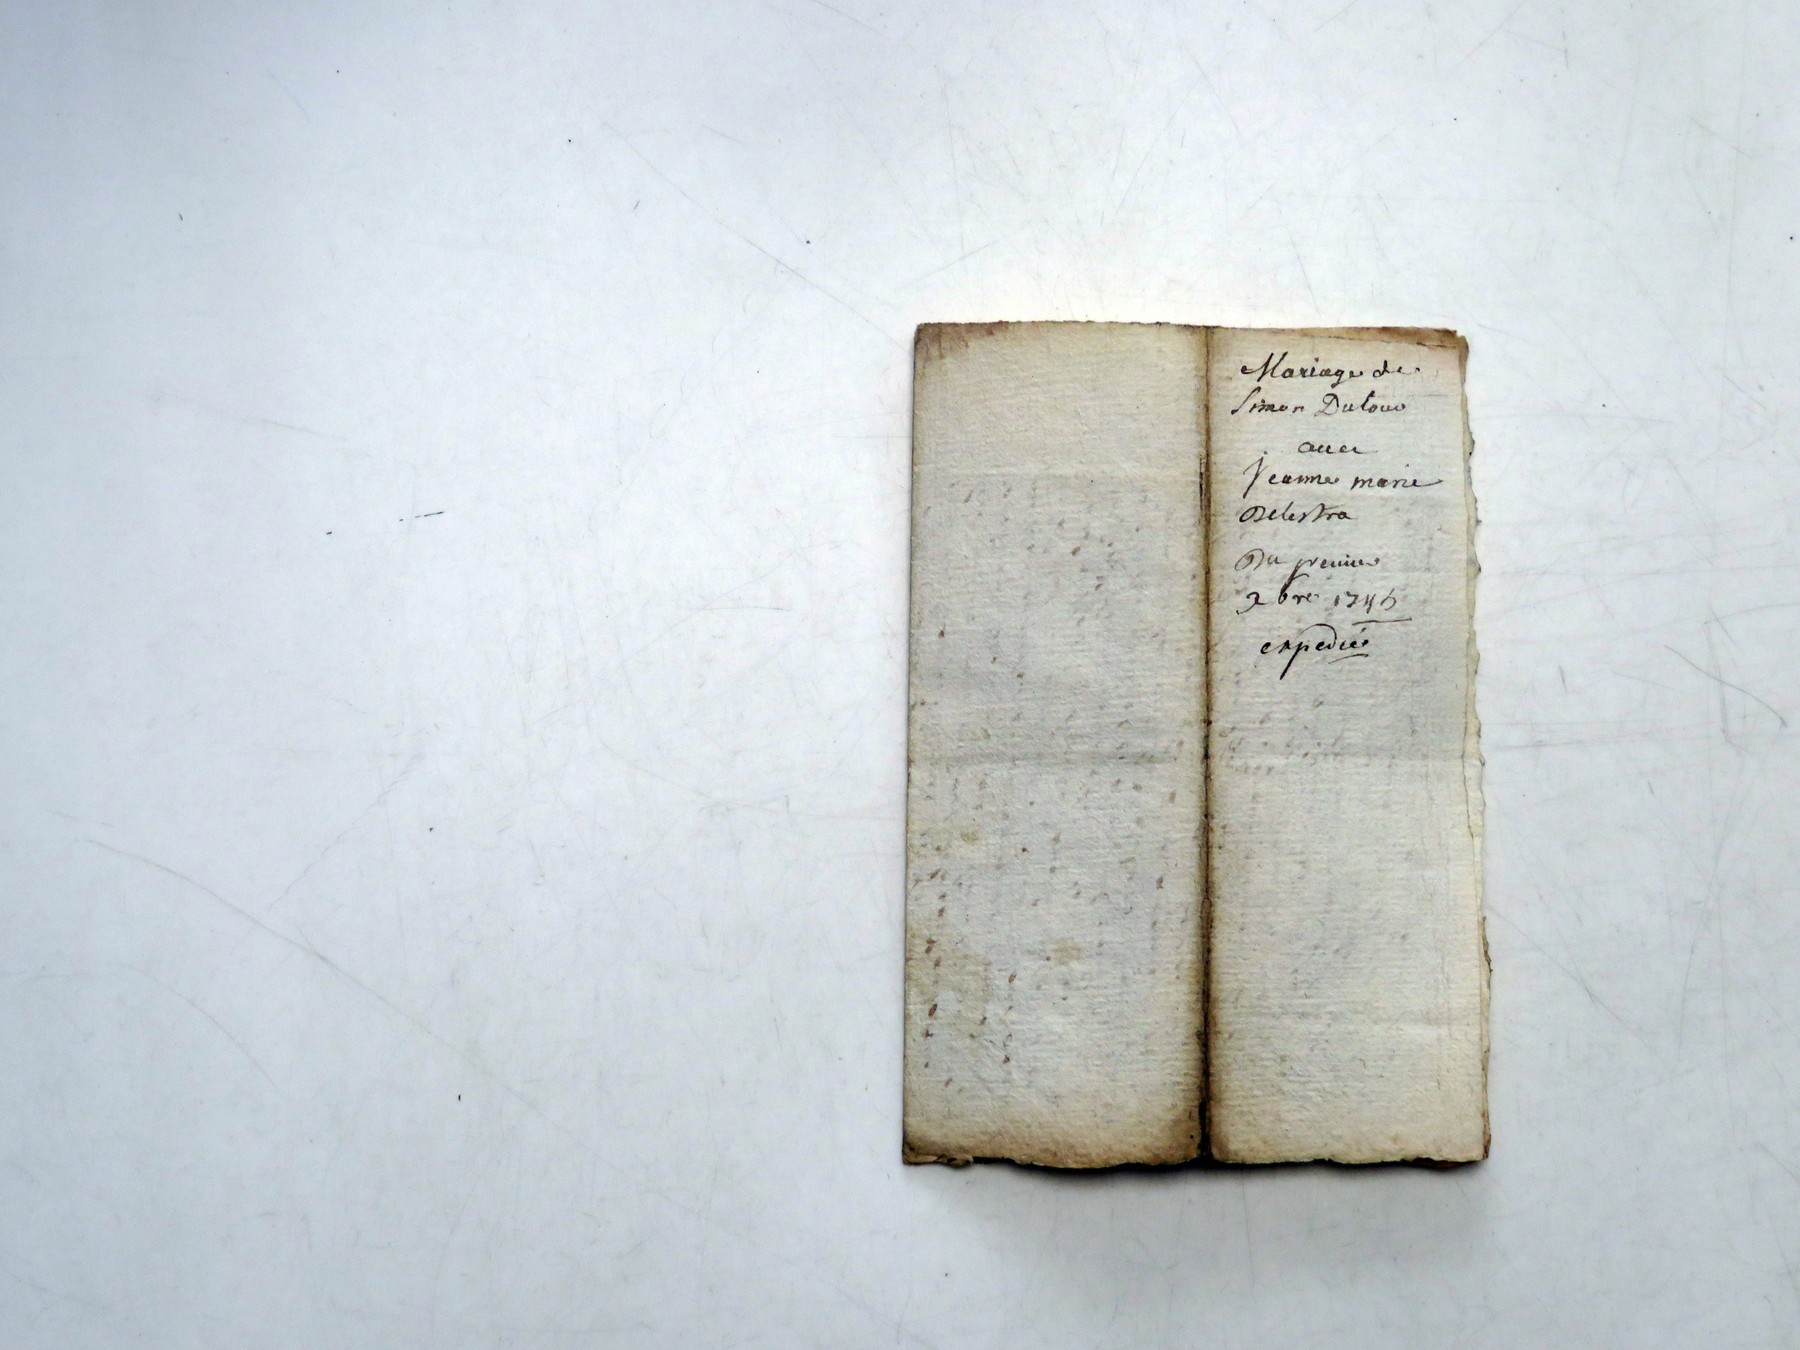 Mariage de
Simon Dutour
avec
Jeanne marie
Delestra
Du premier
9bre 1745
expediée